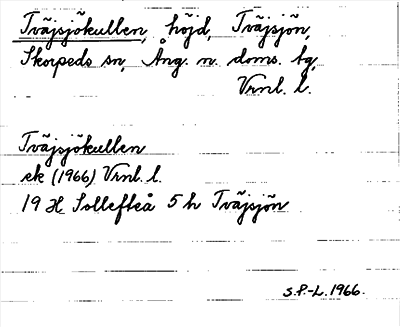 Tväjsjökullen, höjd, Tväjsjön,
Skorpeds sn, Ång. n. doms. tg,
Vrnl. l.
Tväjsjökullen
ek (1966) Vrnl. l.
19 H Sollefteå 5 h Tväjsjön
S.P.-L. 1966.